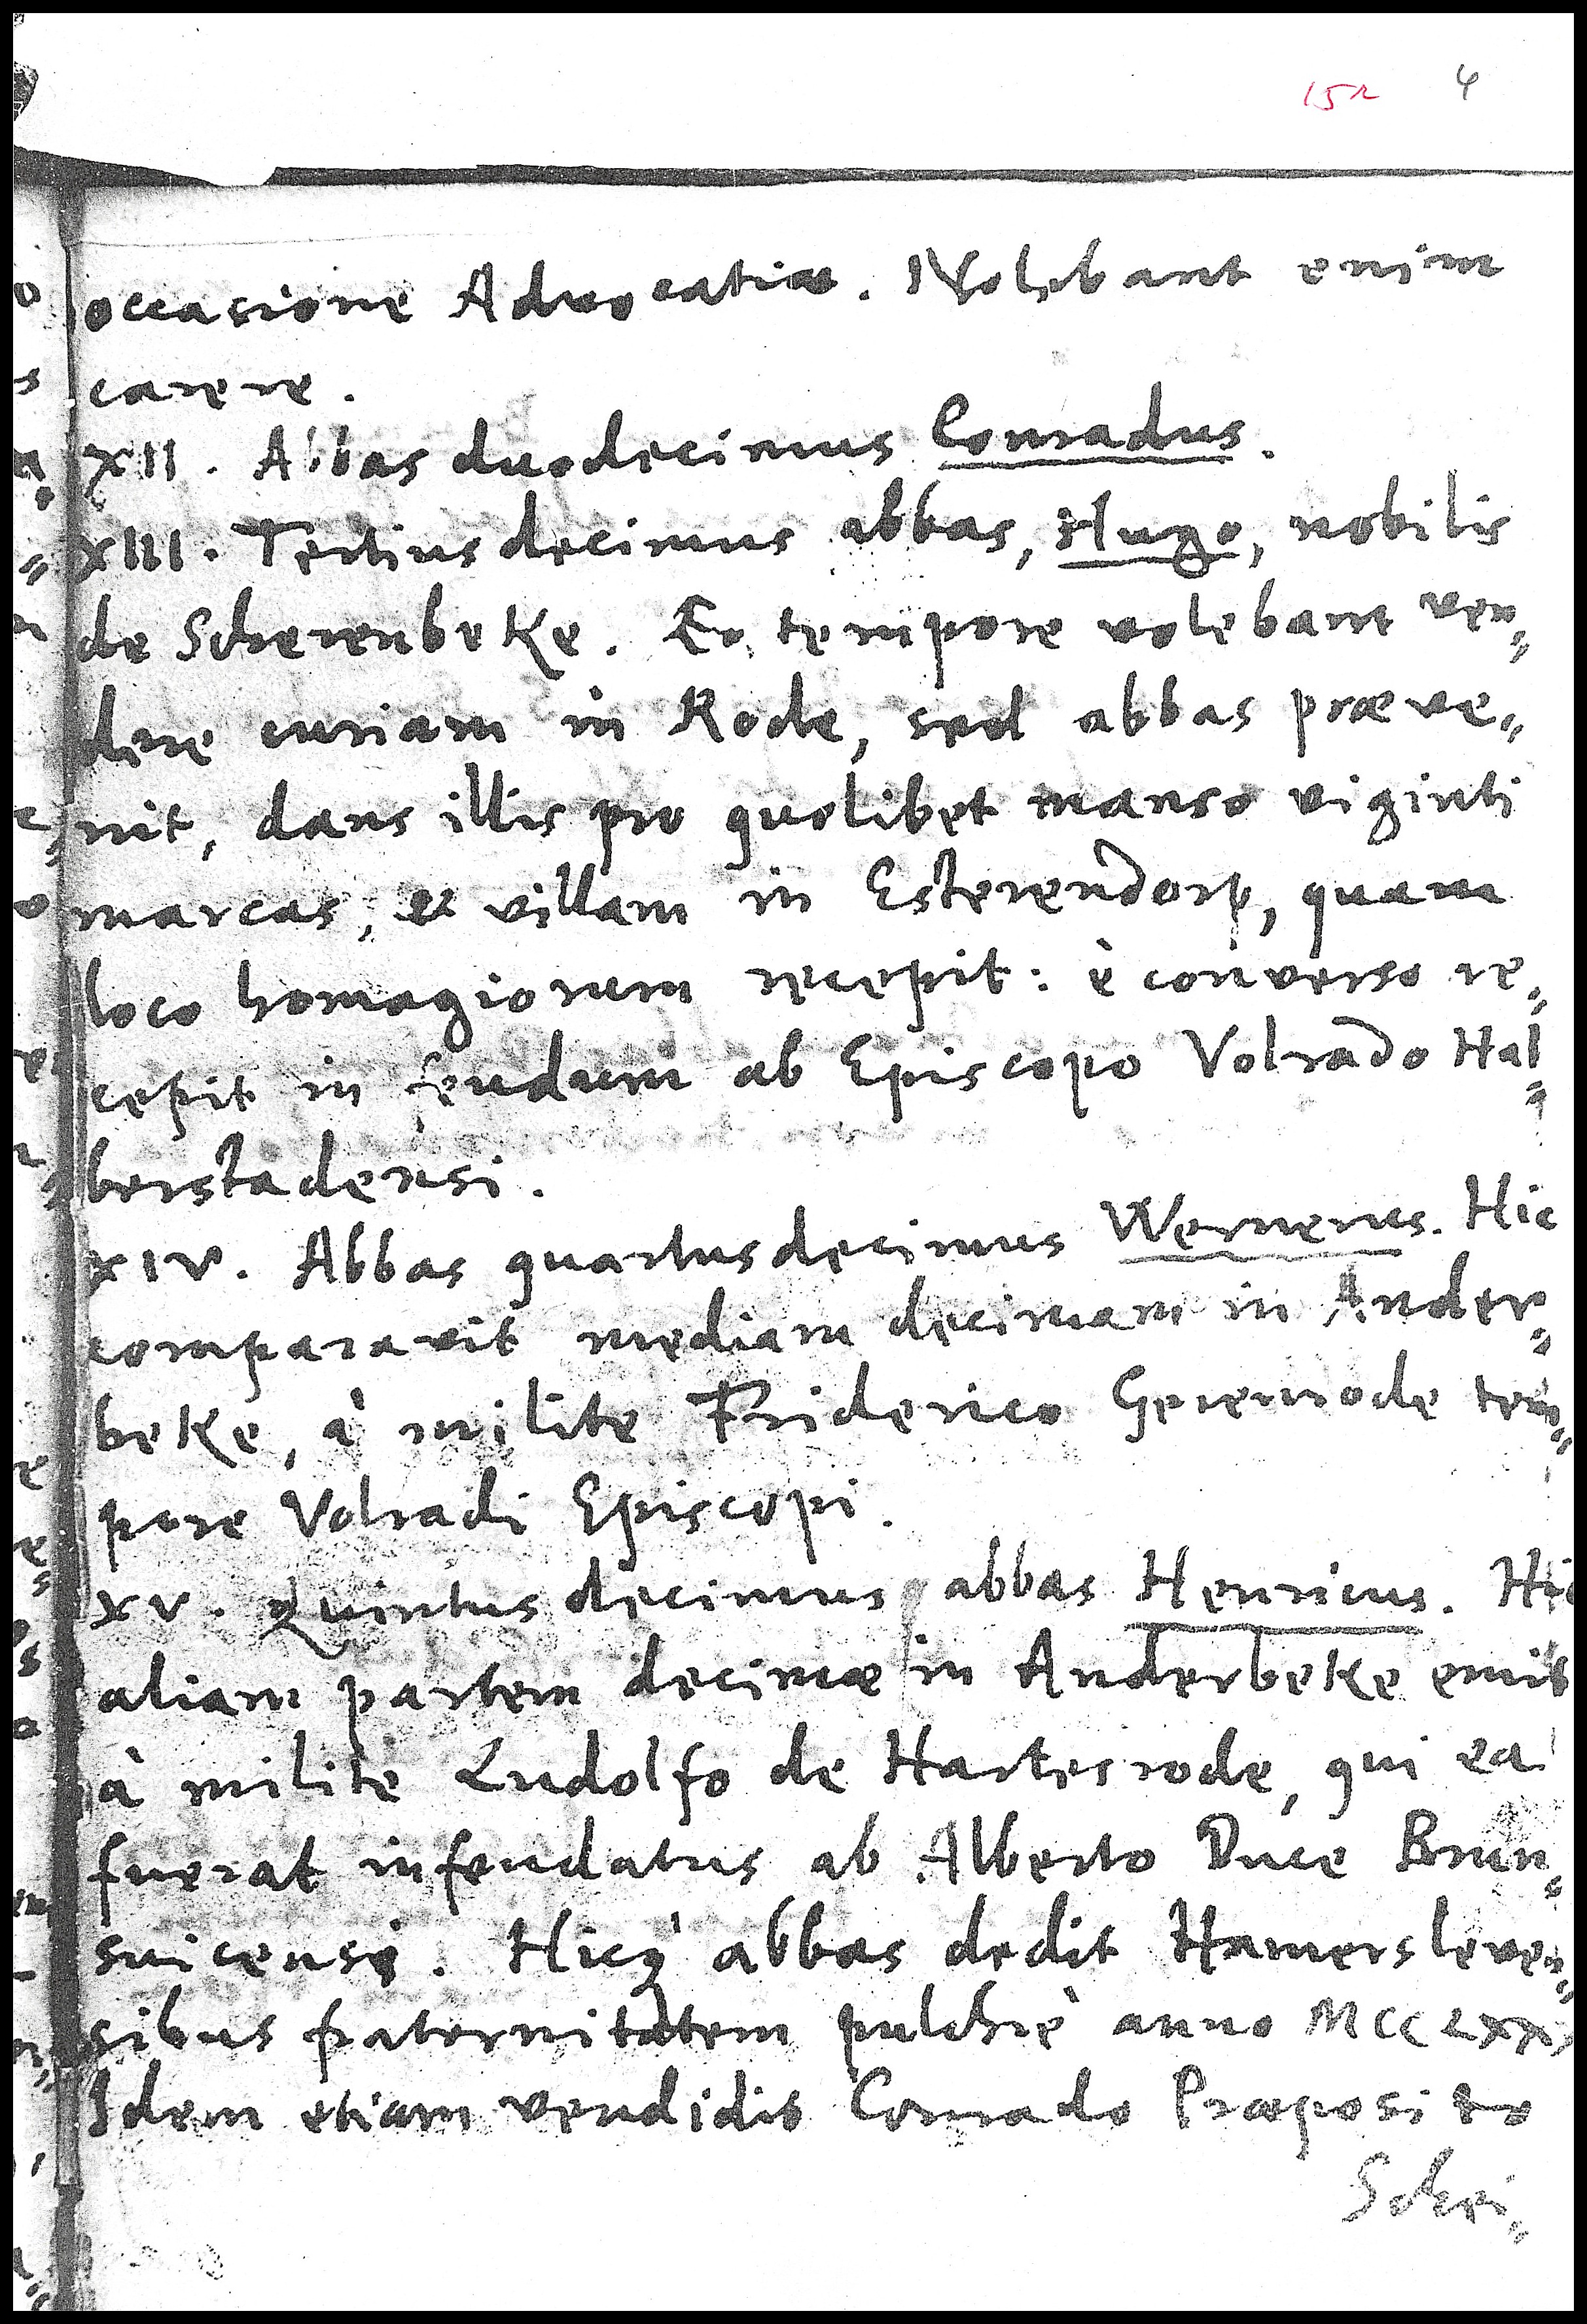 15r 4
occasione Advocatiæ. Nolebant enim
carere.
XII. Abbas duodecimus Conradus.
XIII. Tertius decimus abbas, Hugo, nobilis
de Scherenbeke. Eo tempore volebant ven⸗
dere curiam in Rode, sed abbas præve⸗
nit, dans illis pro quolibet manso viginti
marcas, et villam in Esterendorp, quam
loco homagiorum recepit: è converso re⸗
cepit in feudum ab Episcopo Volrado Hal⸗
berstadensi.
XIV. Abbas quartus decimus Wernerus. Hic
comparavit mediam decimam in Ander⸗
beke, à milite Friderico Gerenrode tem⸗
pore Volradi Episcopi.
XV. Quintus decimus abbas Henricus. Hic
aliam partem decimæ in Anderbeke emit
à milite Ludolfo de Hartesrode, qui ea
fuerat infeudatus ab Alberto Duce Brun⸗
suicensi. Hicq́ abbas dedit Hamersleven⸗
sibus fraternitatem pulchrè anno
Idem etiam vendidit Conrado Præposito
Scheni⸗